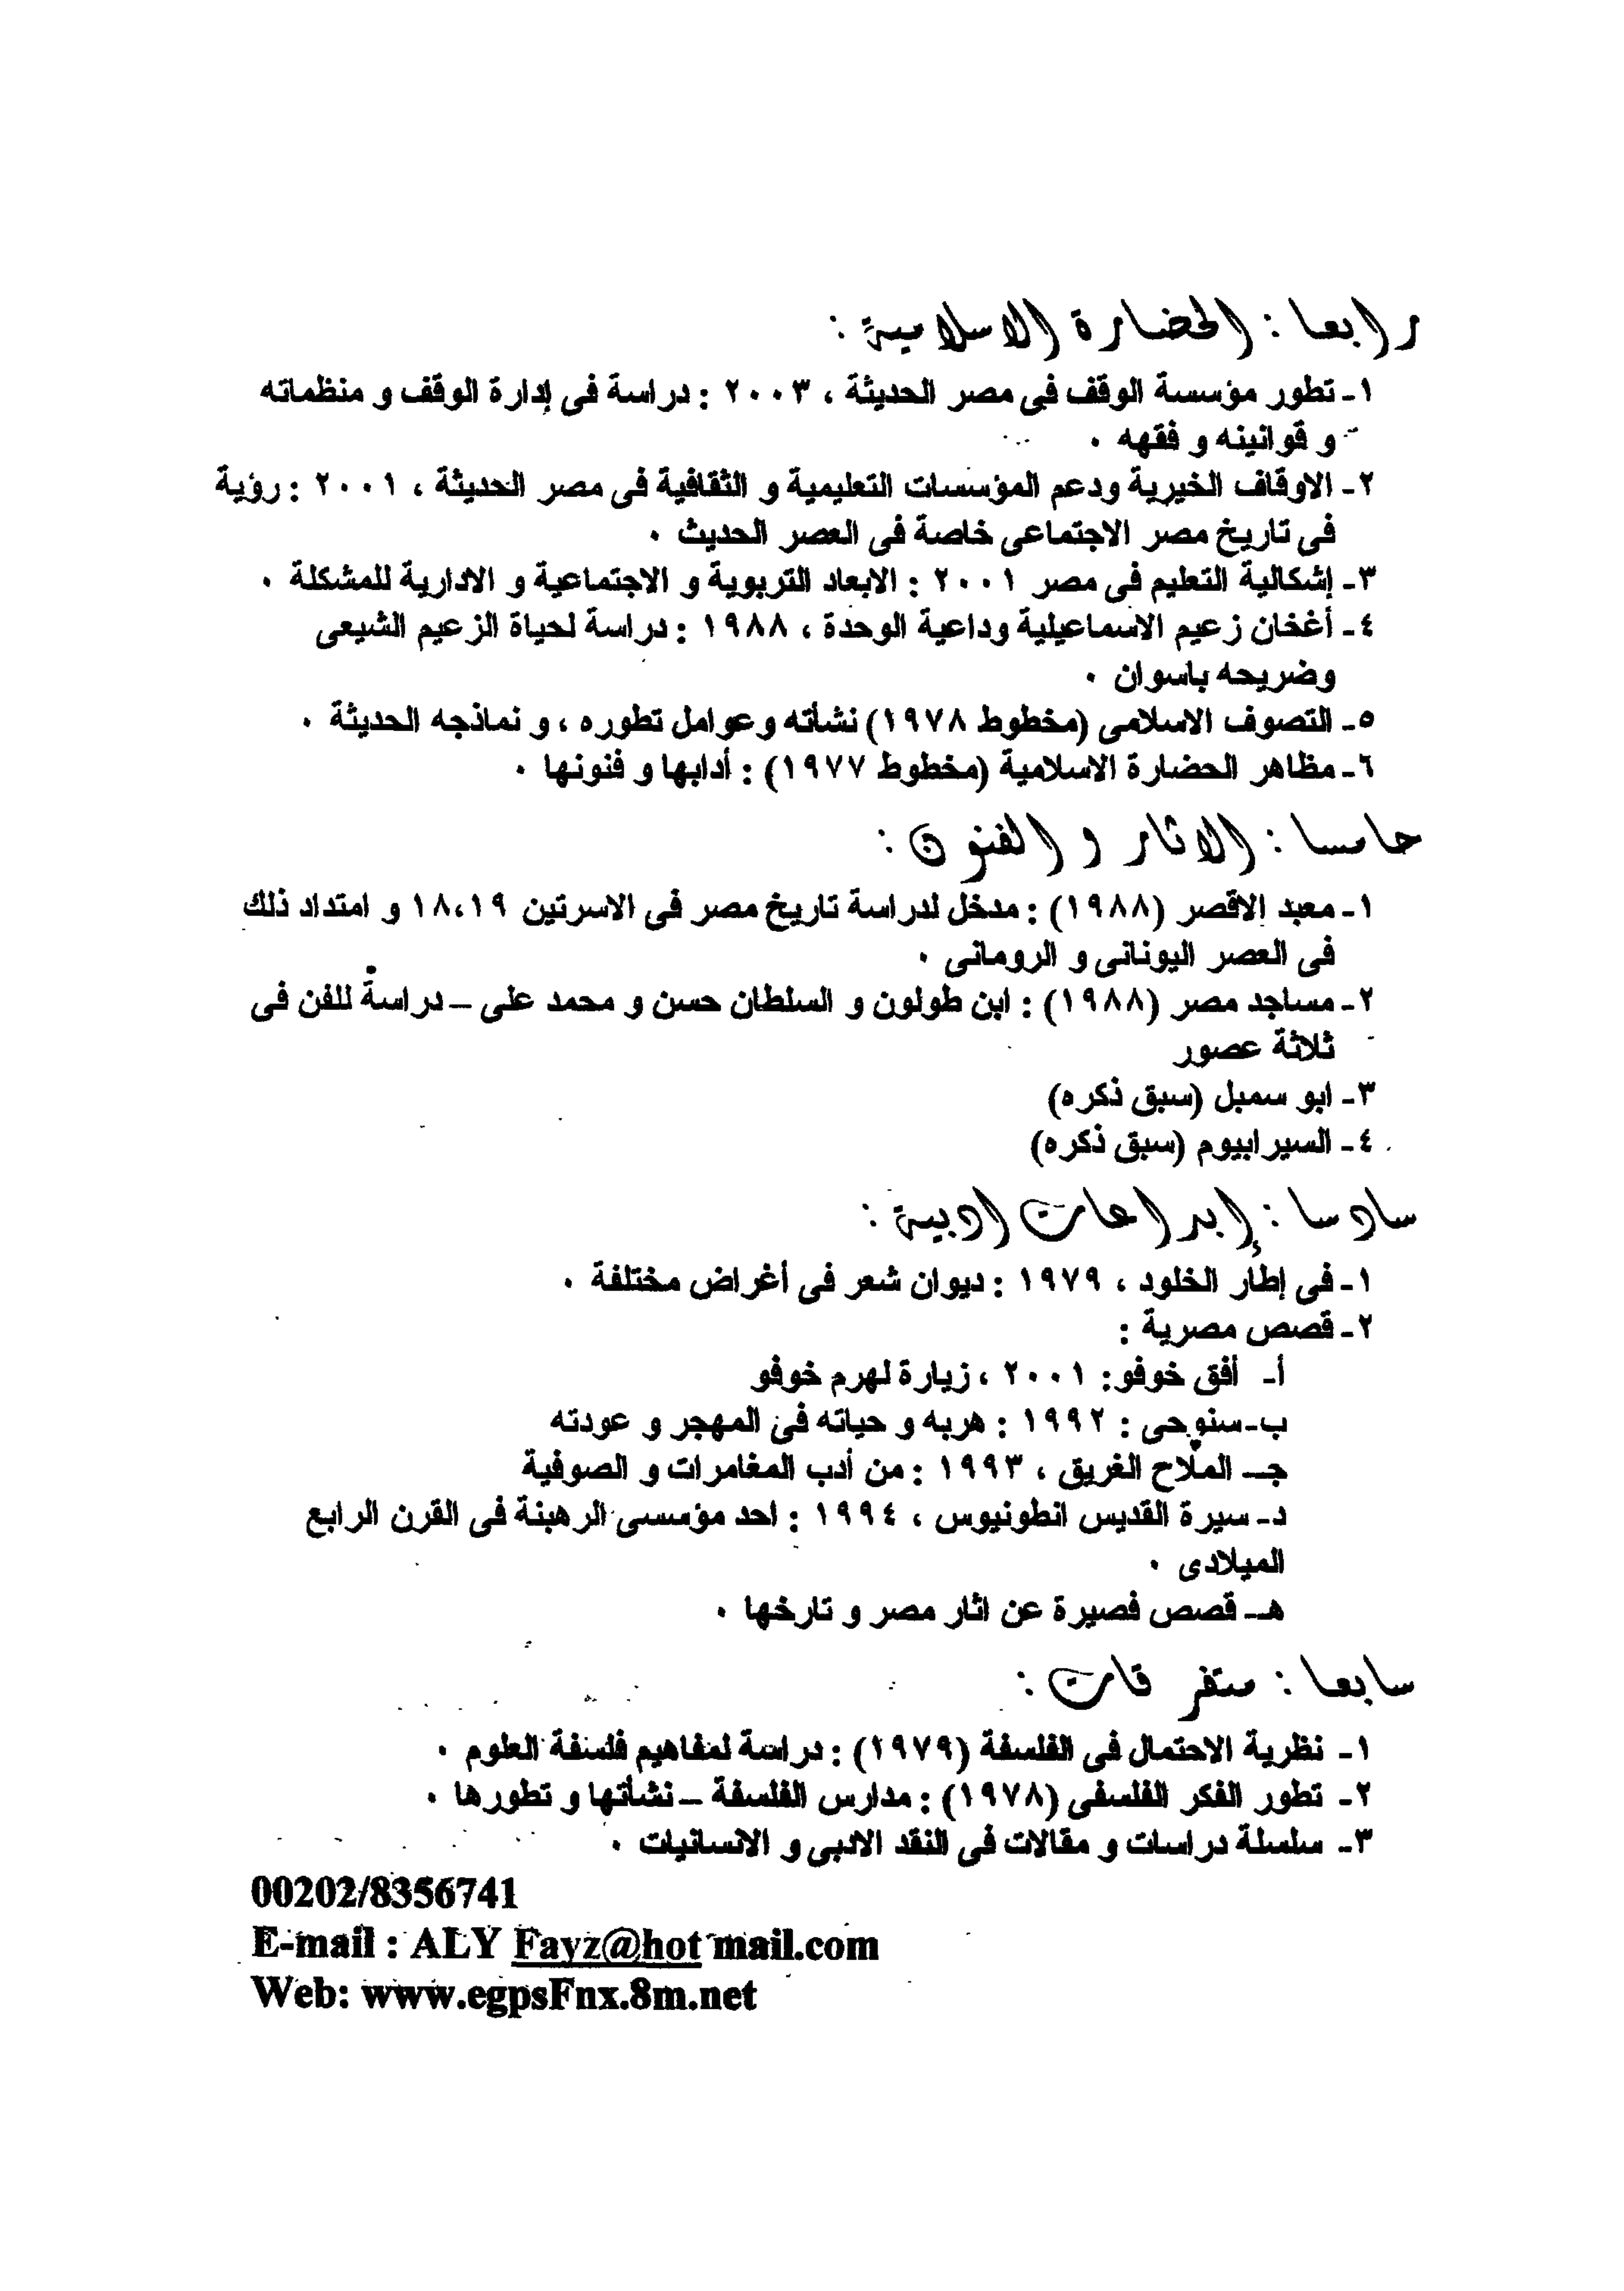 رابعا : الحضارة الاسلامية :
١- تطور مؤسسة الوقف فى مصر الحديثة ، ٢٠٠٣ : دراسة فى إدارة الوقف و منظماته
و قوانينه و فقهه ٠
٢- الاوقاف الخيرية ودعم المؤسسات التعليمية و الثقافية فى مصر الحديثة ، ٢٠٠١ : رؤية
فى تاريخ مصر الاجتماعى خاصة فى العصر الحديث ٠
٣- إشكالية التعليم فى مصر ٢٠٠١ : الابعاد التربوية و الاجتماعية و الادارية للمشكلة ٠
٤- أغخان زعيم الاسماعيلية وداعية الوحدة ، ١٩٨٨ : دراسة لحياة الزعيم الشيعى
وضريحه باسوان ٠
٥- التصوف الاسلامى (مخطوط ١٩٧٨) نشأته وعوامل تطوره ، و نماذجه الحديثة ٠
٦- مظاهر الحضارة الاسلامية (مخطوط ١٩٧٧) : أدابها و فنونها ٠
خامسا : الاثار و الفنون :
١- معبد الاقصر (١٩٨٨) : مدخل لدراسة تاريخ مصر فى الاسرتين ١٨،١٩ و امتداد ذلك
فى العصر اليونانى و الرومانى ٠
٢- مساجد مصر (١٩٨٨) : ابن طولون و السلطان حسن و محمد على – دراسة للفن فى
ثلاثة عصور
٣- ابو سمبل (سبق ذكره)
٤- السيرابيوم (سبق ذكره)
سادسا : إبداعات ادبية :
١- فى إطار الخلود ، ١٩٧٩ : ديوان شعر فى أغراض مختلفة ٠
٢- قصص مصرية :
أ- أفق خوفو: ٢٠٠١ ، زيارة لهرم خوفو
ب- سنوحى : ١٩٩٢ : هربه و حياته فى المهجر و عودته
جـ- الملاح الغريق ، ١٩٩٣ : من أدب المغامرات و الصوفية
د- سيرة القديس انطونيوس ، ١٩٩٤ : احد مؤسسى الرهبنة فى القرن الرابع
الميلادى ٠
هـ- قصص قصيرة عن اثار مصر و تارخها ٠
سابعا : متفرقات :
١- نظرية الاحتمال فى الفلسفة (١٩٧٩) : دراسة لمفاهيم فلسفة العلوم ٠
٢- تطور الفكر الفلسفى (١٩٧٨) : مدارس الفلسفة – نشأتها و تطورها ٠
٣- سلسلة دراسات و مقالات فى النقد الادبى و الانسانيات ٠
00202/8356741
E-mail : ALY Fayz@hot mail.com
Web: www.egpsFnx.8m.net